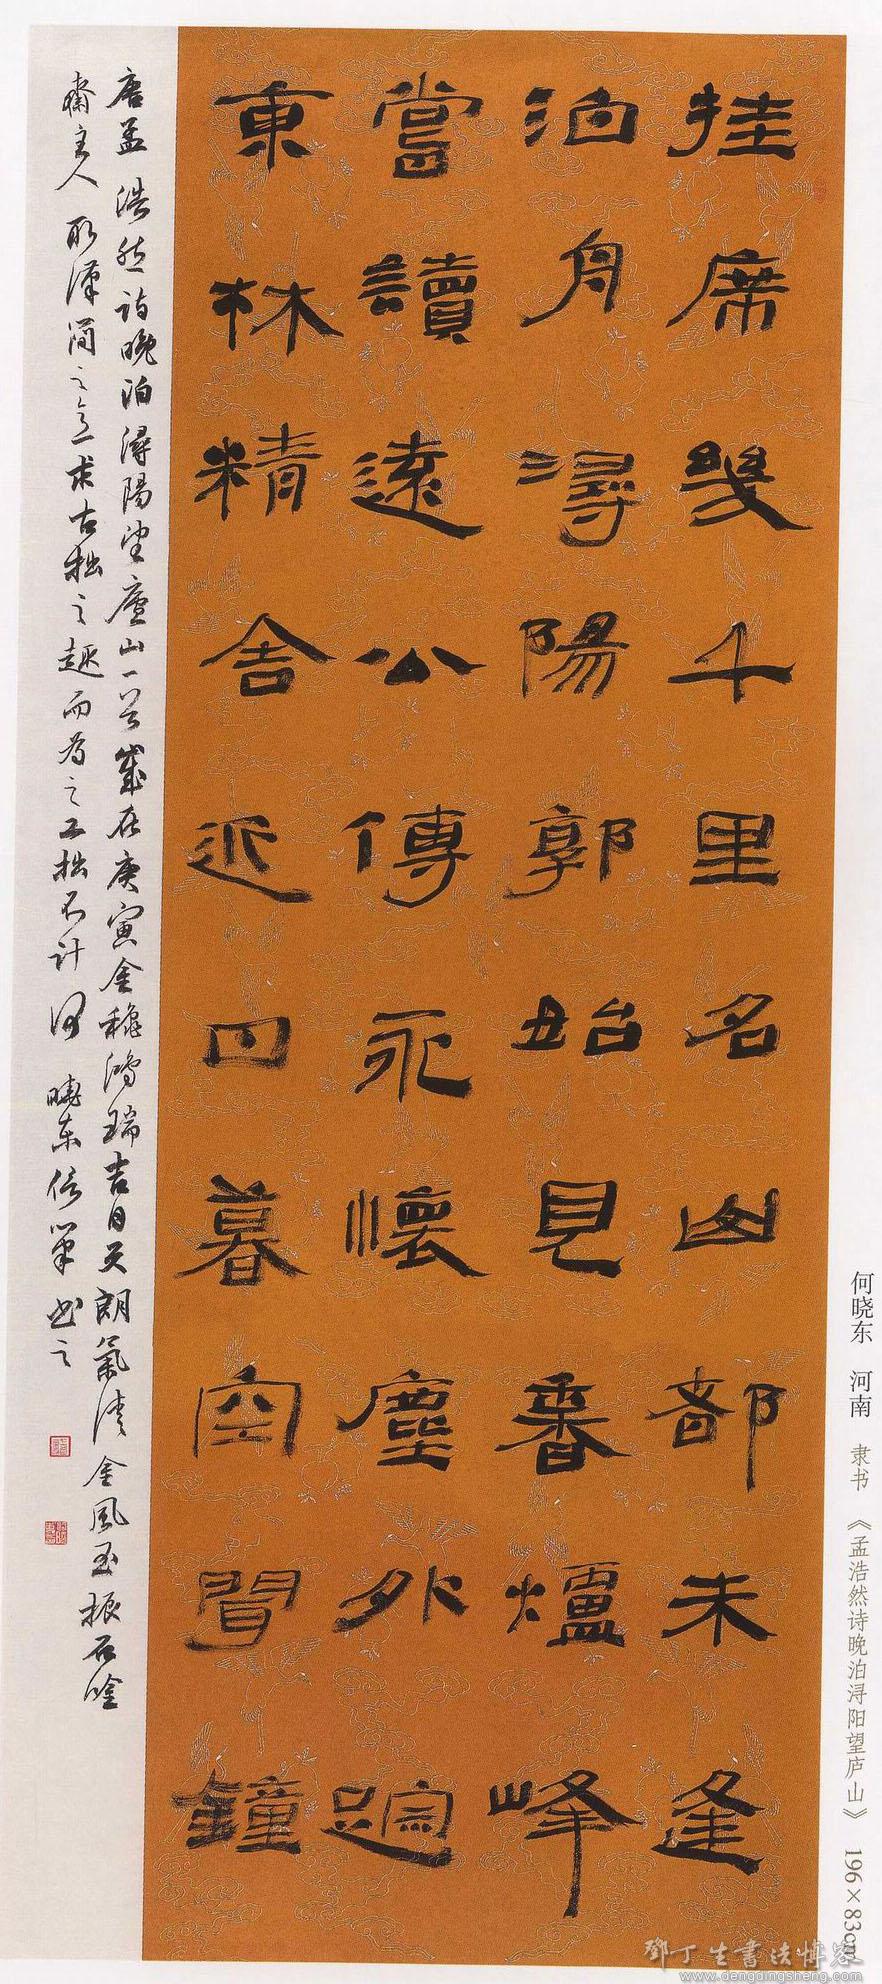 挂席幾千里名山都未逢
泊舟潯陽郭始見香爐峰
嘗讀遠公傳永懷塵外踪
東林精舍近日暮空聞鐘
唐孟浩然詩晚泊潯陽望廬山一首歲在庚寅金穐鴻瑞吉日天朗氣清金風玉振石唫
齋主人取漢簡之意求古拙之趣而為之工拙不計何曉東信筆書之
何晓东 河南 隶书 《孟浩然诗晚泊浔阳望庐山》 196×83cm
鄧丁生書法博客
www.dengdingsheng.com